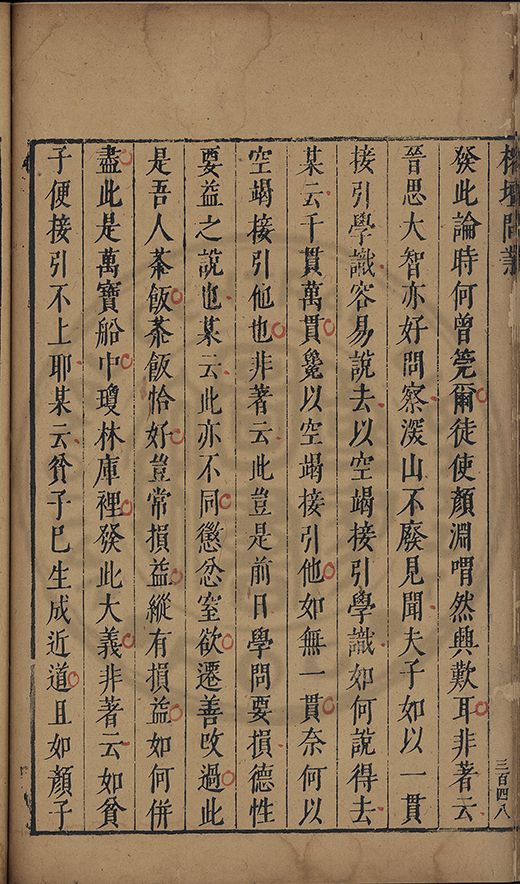 榕壇問業
發此論時何曾筦爾徒使顏淵喟然興歎耳非著云
晉思大智亦好問察深山不廢見聞夫子如以一貫
接引學識容易說去以空竭接引學識如何說得去
某云千貫萬貫纔以空竭接引他如無一貫奈何以
空竭接引他也非著云此豈是前日學問要損德性
要益之說也某云此亦不同懲忿窒欲遷善改過此
是吾人茶飯茶飯恰好豈常損益縱有損益如何併
盡此是萬寶船中瓊林庫裡發此大義非著云如貧
子便接引不上耶某云貧子已生成近道且如顏子
三百四八